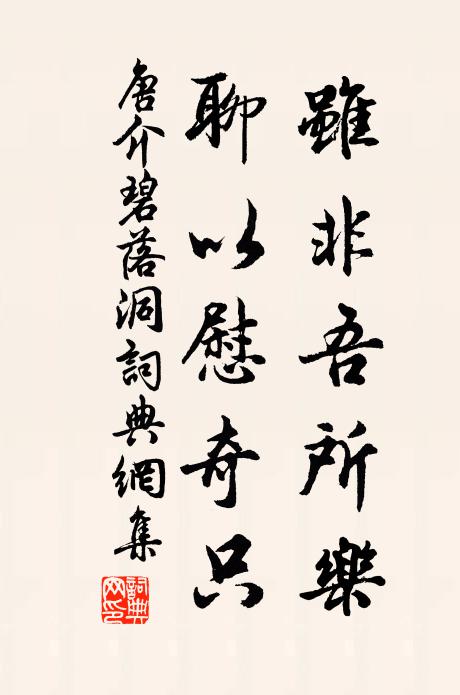 雖非吾所樂
聊以慰奇只
唐介碧落洞詞典網集
詞典網印